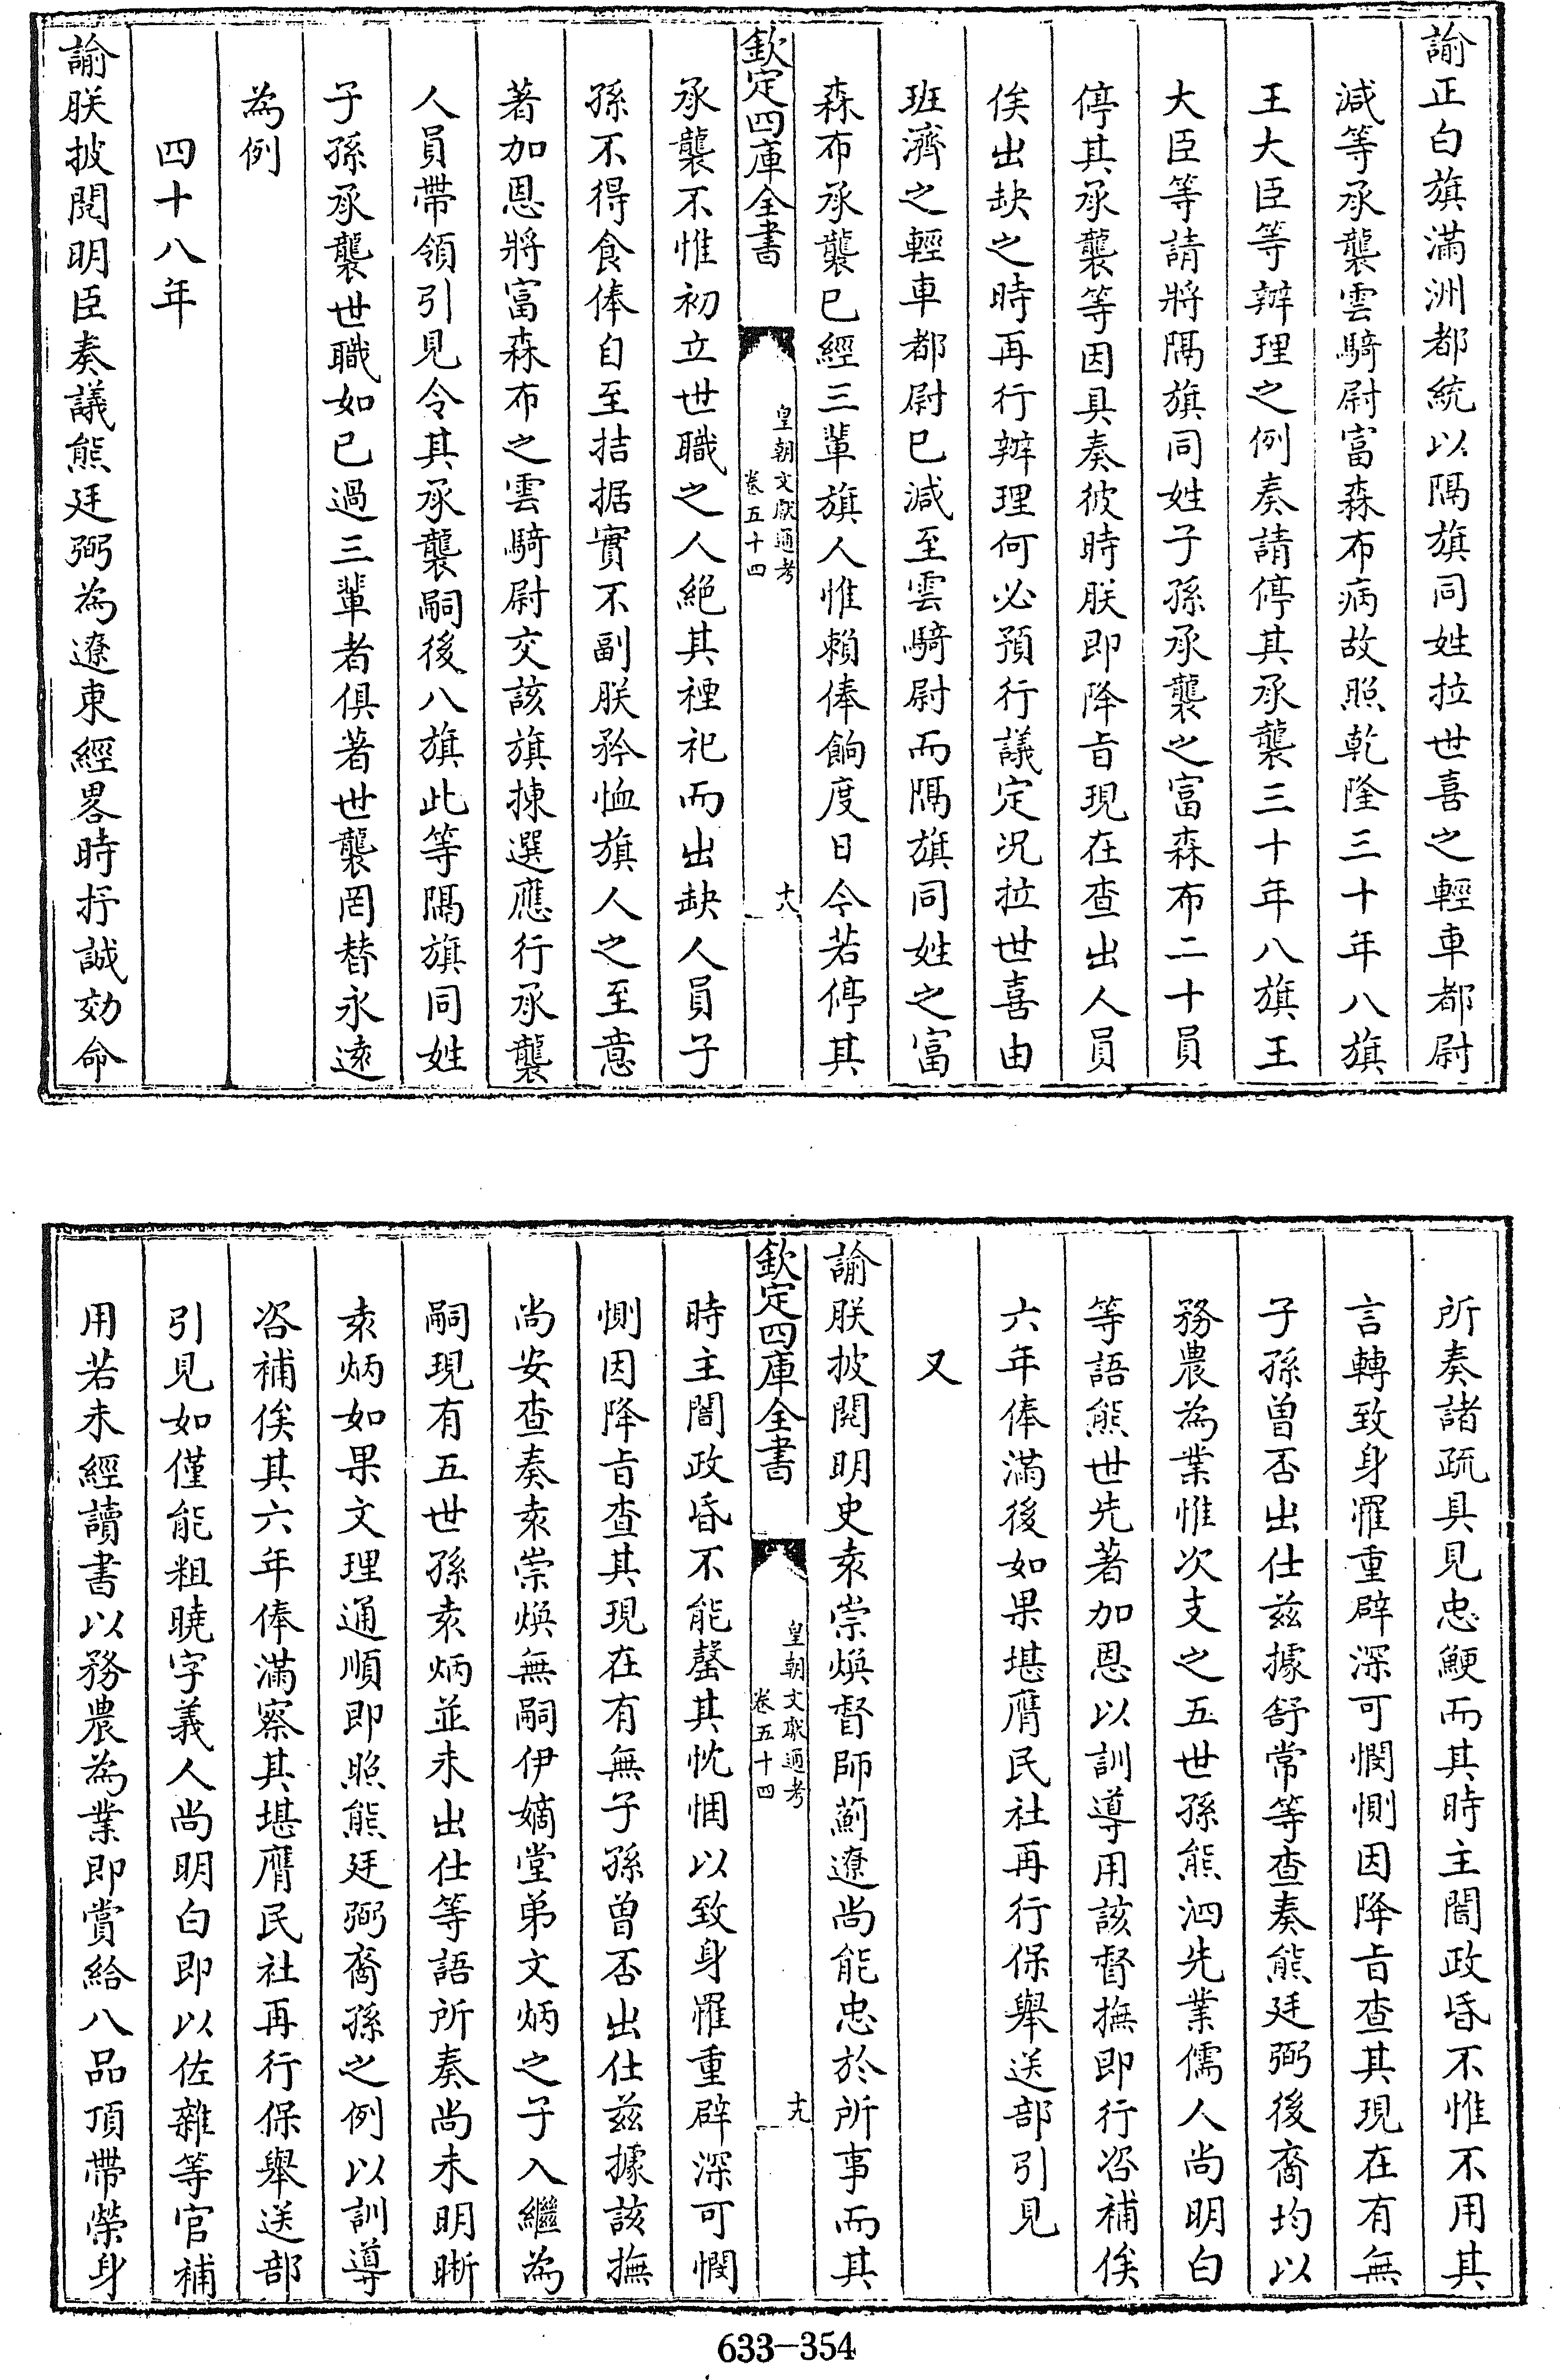 諭正白旗滿洲都統以隔旗同姓拉世喜之輕車都尉
減等承襲雲騎尉富森布病故照乾隆三十年八旗
王大臣等辦理之例奏請停其承襲三十年八旗王
大臣等請將隔旗同姓子孫承襲之富森布二十員
停其承襲等因具奏彼時朕即降旨現在查出人員
俟出缺之時再行辦理何必預行議定况拉世喜由
班濟之輕車都尉已減至雲騎尉而隔旗同姓之富
森布承襲已經三輩旗人惟賴俸餉度日今若停其
欽定四庫全書
皇朝文獻通考
卷五十四
十八
承襲不惟初立世職之人絕其禋祀而出缺人員子
孫不得食俸自至拮据實不副朕矜恤旗人之至意
著加恩將富森布之雲騎尉交該旗揀選應行承襲
人員帶領引見令其承襲嗣後八旗此等隔旗同姓
子孫承襲世職如已過三輩者俱著世襲罔替永遠
為例
四十八年
諭朕披閱明臣奏議熊廷弼為遼東經畧時抒誠効命
所奏諸疏具見忠鯁而其時主闇政昏不惟不用其
言轉致身罹重辟深可憫惻因降旨查其現在有無
子孫曾否出仕兹據舒常等查奏熊廷弼後裔均以
務農為業惟次支之五世孫熊泗先業儒人尚明白
等語熊世先著加恩以訓導用該督撫即行咨補俟
六年俸滿後如果堪膺民社再行保舉送部引見
又
諭朕披閱明史袁崇煥督師薊遼尚能忠於所事而其
欽定四庫全書
皇朝文獻通考
卷五十四
十九
時主闇政昏不能罄其忱悃以致身罹重辟深可憫
惻因降旨查其現在有無子孫曾否出仕兹據該撫
尚安查奏袁崇煥無嗣伊嫡堂弟文炳之子入繼為
嗣現有五世孫袁炳並未出仕等語所奏尚未明晰
袁炳如果文理通順即照熊廷弼裔孫之例以訓導
咨補俟其六年俸滿察其堪膺民社再行保舉送部
引見如僅能粗曉字義人尚明白即以佐雜等官補
用若未經讀書以務農為業即賞給八品頂帶榮身
633-354